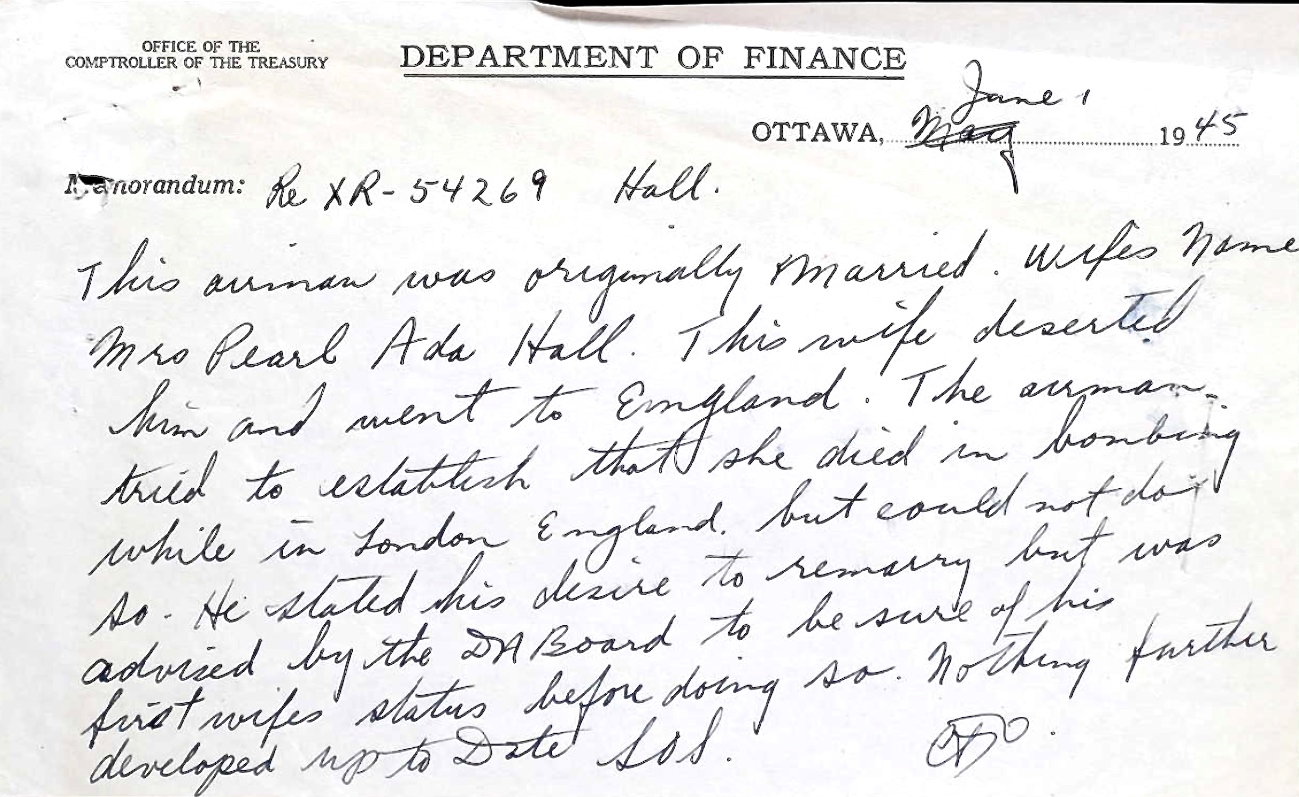 OFFICE OF THE
COMPTROLLER OF THE TREASURY
DEPARTMENT OF FINANCE
June 1
OTTAWA, May 1945
Memorandum: Re XR-54269 Hall.
This airman was originally Married. Wifes Name
Mrs Pearl Ada Hall. This wife deserted
him and went to England. The airman
tried to establish that she died in bombing
while in London England. but could not do
so. He stated his desire to remarry but was
advised by the DA Board to be sure of his
first wifes status before doing so. Nothing further
developed up to Date SOS.